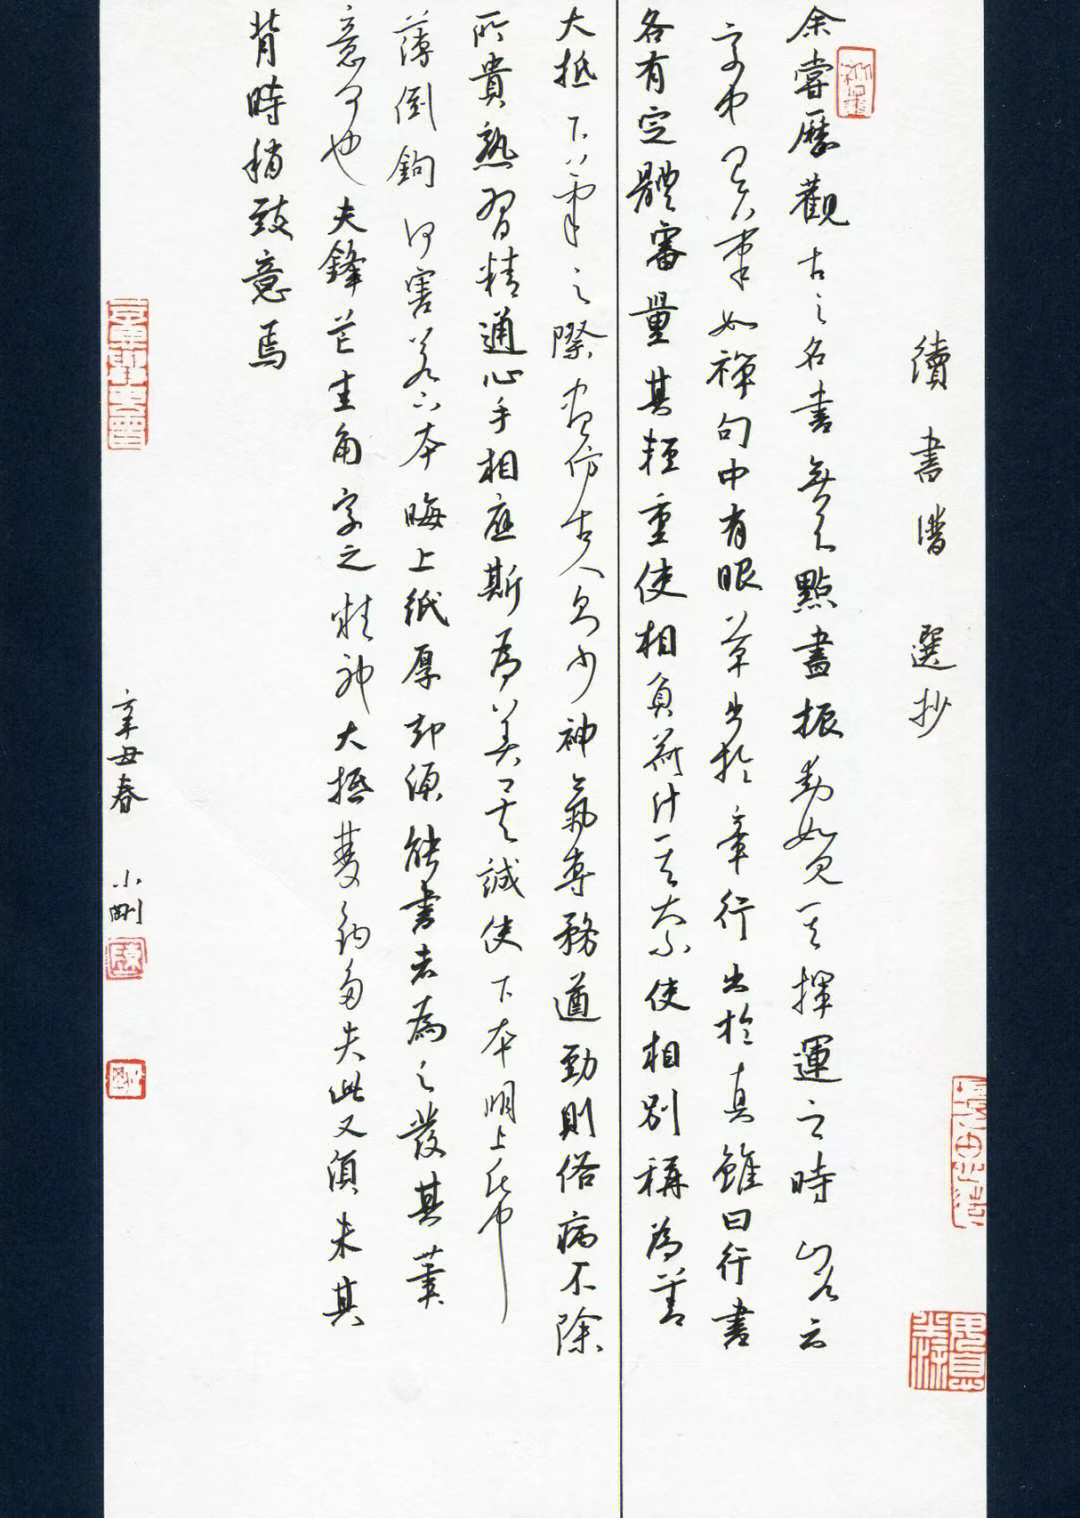 續書譜 選抄
余嘗歷觀古之名書無不點畫振動如見其揮運之時山谷云
字中有筆如禪句中有眼草出於章行出於真雖曰行書
各有定體審量其輕重使相負荷計其大小使相別稱為善
大抵下筆之際盡仿古人則少神氣專務遒勁則俗病不除
所貴熟習精通心手相應斯為美矣誠使下本明上紙
薄倒鉤何害若下本晦上紙厚却須能書者為之發其筆
意可也夫鋒芒圭角字之精神大抵雙鉤多失此又須朱其
背時稍致意焉
辛丑春 小剛